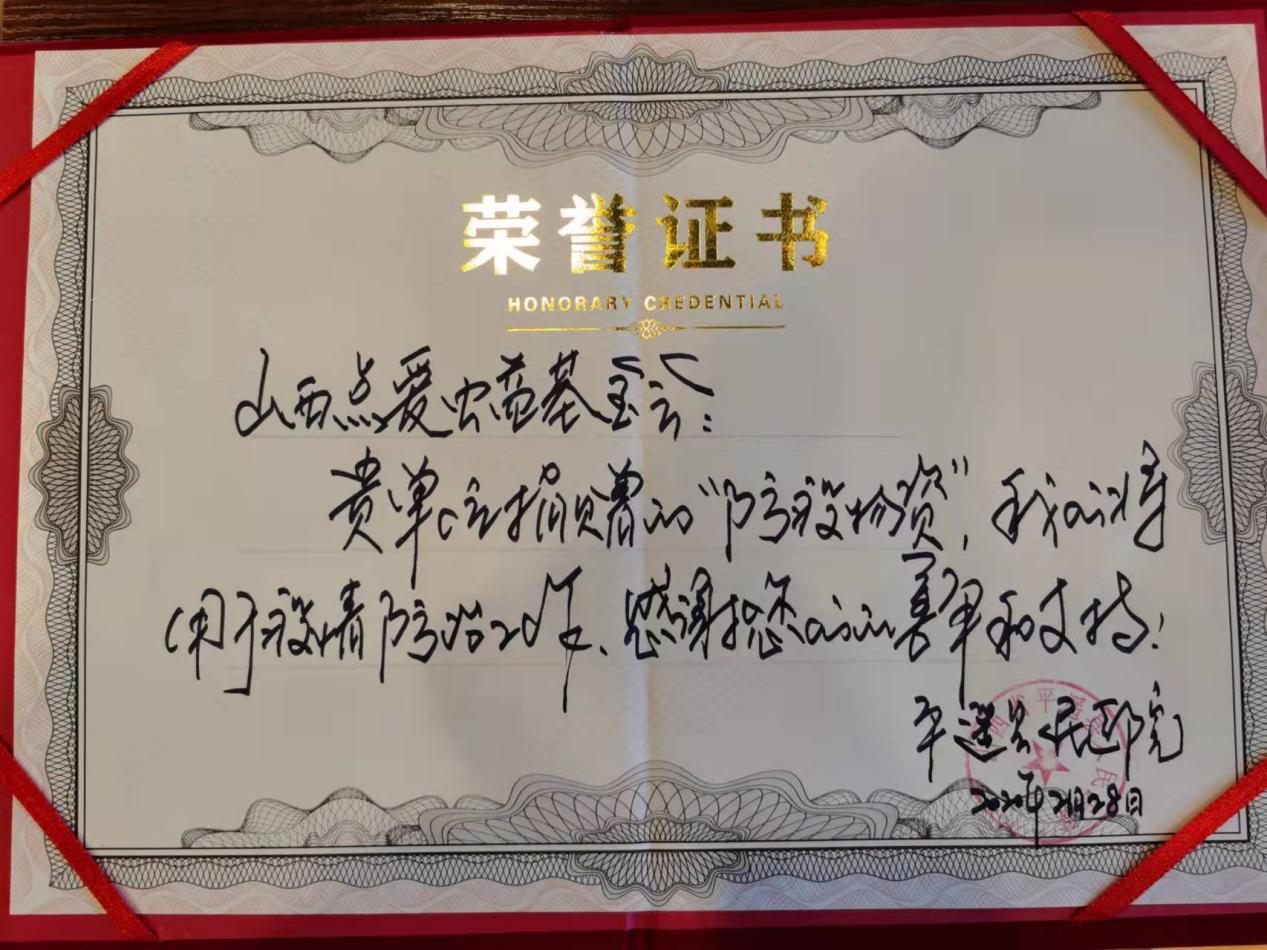 荣誉证书
HONORARY CREDENTIAL
山西点爱公益基金会:
贵单位捐赠的“防疫物资”,我们将
用于疫情防治工作、感谢您们的善举和支持!
平遥县人民医院
2020年2月28日